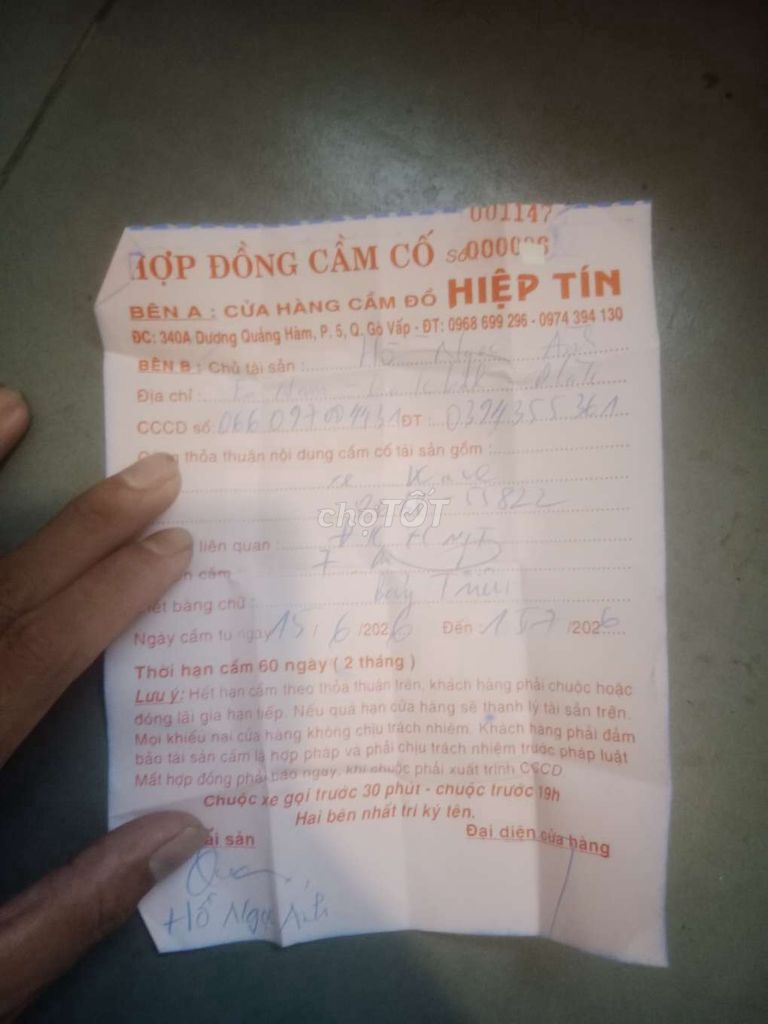 001147
HỢP ĐỒNG CẦM CỐ Số
BÊN A : CỬA HÀNG CẦM ĐỒ HIỆP TÍN
ĐC: 340A Dương Quảng Hàm, P. 5, Q. Gò Vấp - ĐT: 0968 699 296 - 0974 394 130
BÊN B : Chủ tài sản : Hồ Ngọc Ánh
Địa chỉ :
CCCD số: ĐT: 0394355361
thỏa thuận nội dung cầm cố tài sản gồm :
xe
55822
chợTỐT
liên quan :
cầm 7
bằng chữ : bảy Triệu
Ngày cầm từ ngày 15 / 6 /2026 Đến : 15/7 /2026
Thời hạn cầm 60 ngày ( 2 tháng )
Lưu ý: Hết hạn cầm theo thỏa thuận trên, khách hàng phải chuộc hoặc
đóng lãi gia hạn tiếp. Nếu quá hạn cửa hàng sẽ thanh lý tài sản trên.
Mọi khiếu nại cửa hàng không chịu trách nhiệm. Khách hàng phải đảm
bảo tài sản cầm là hợp pháp và phải chịu trách nhiệm trước pháp luật
Mất hợp đồng phải báo ngay, khi chuộc phải xuất trình CCCD
Chuộc xe gọi trước 30 phút - chuộc trước 19h
Hai bên nhất trí ký tên.
tài sản Đại diện cửa hàng
Hồ Ngọc Ánh